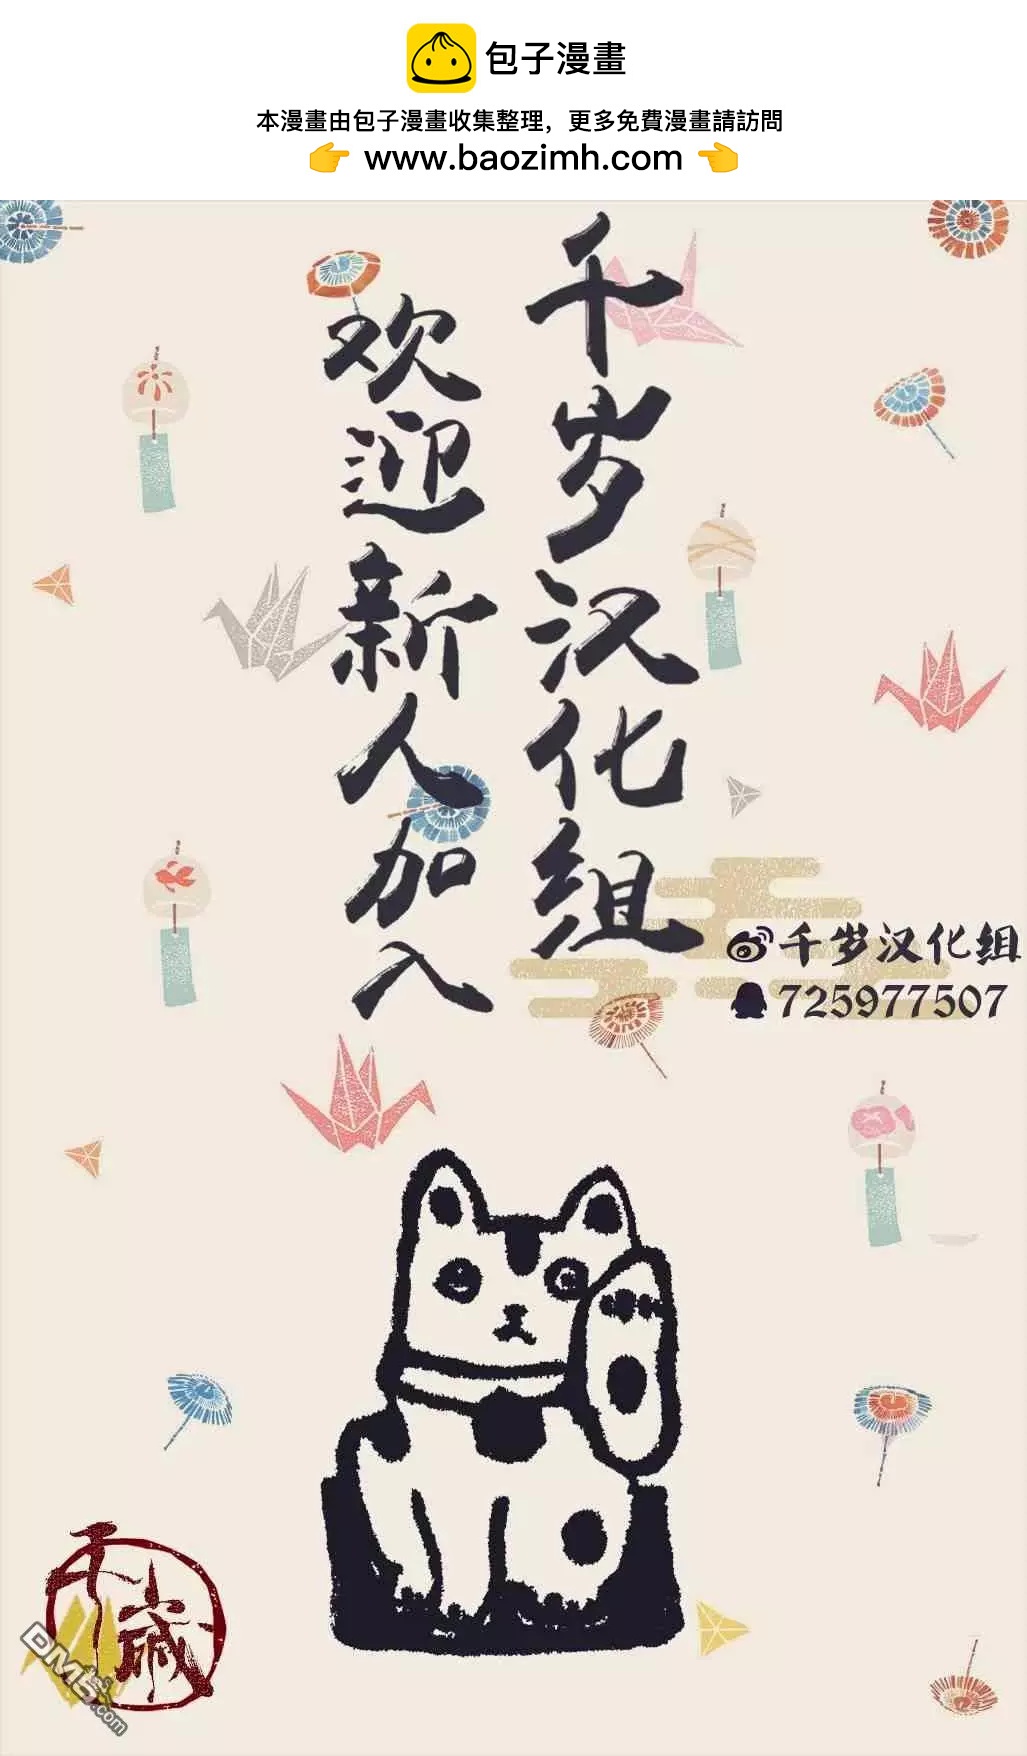 包子漫畫
本漫畫由包子漫畫收集整理，更多免費漫畫請訪問
👉 www.baozimh.com 👈
千岁汉化组
欢迎新人加入
千岁汉化组
725977507
千歳
DM5.com